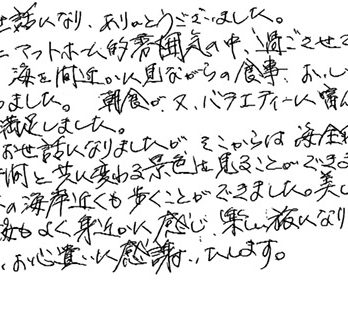 世話になり、ありがとうございました。
アットホーム的雰囲気の中、過ごさせて
海を間近かに見ながらの食事、おいし
ました。 朝食が又、バラエティーに富ん
満足しました。
お世話になりましたが そこからは 海全
何と共に変わる景色を見ることができま
の海岸近くも歩くことができました。美し
もよく身近かに感じ、楽しい旅になり
、お心遣いに感謝いたします。